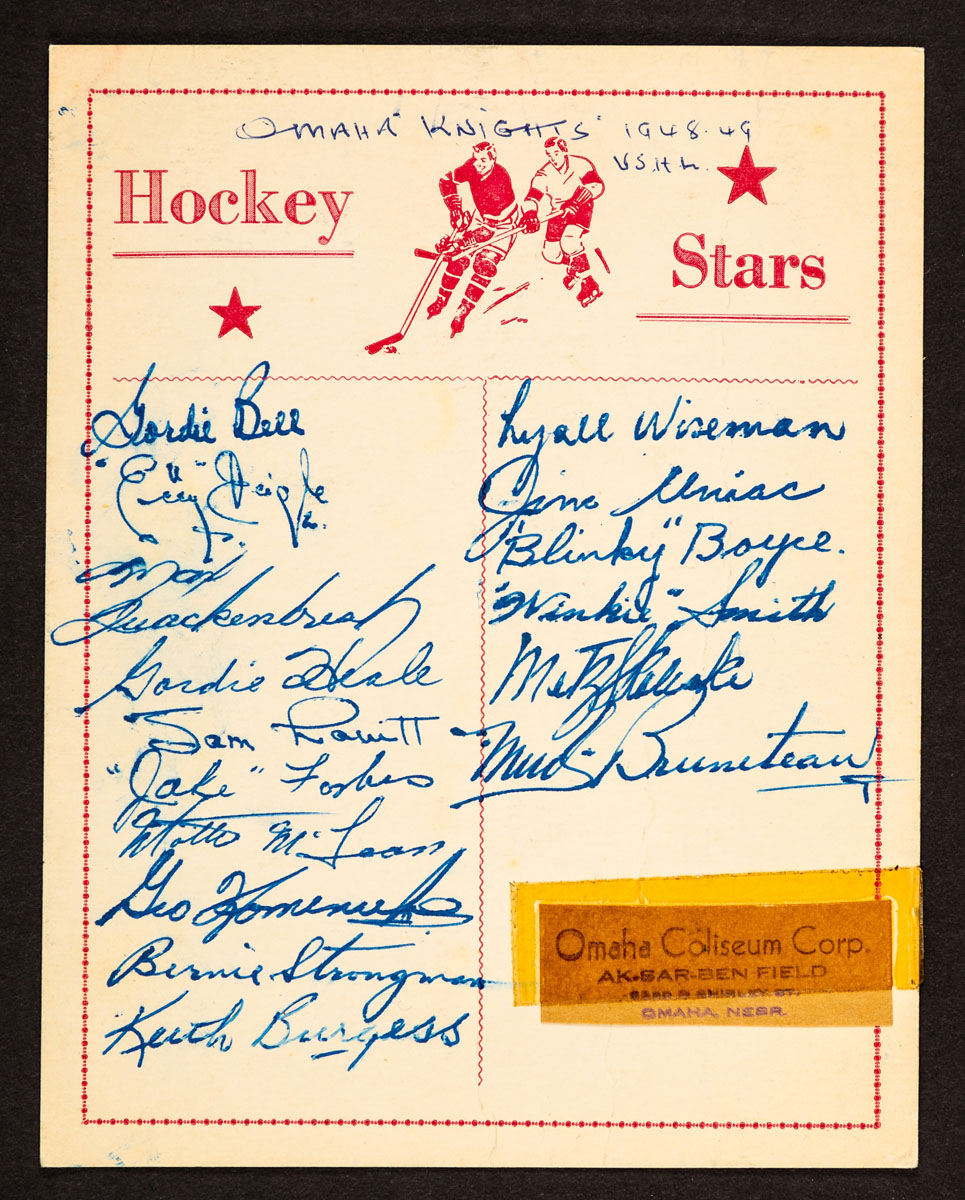 OMAHA "KNIGHTS" 1948-49
U.S.H.L.
Hockey
Stars
Gordie Bell
Max
Quackenbush
Gordie Heale
Sam Lavitt
"Jake" Forbes
Motto McLean
Geo Homenuk
Bernie Strongman
Keith Burgess
Lyall Wiseman
Jim Uniac
"Blinky" Boyce.
"Winkie" Smith
"Mud" Bruneteau
Omaha Coliseum Corp.
AK-SAR-BEN FIELD
SHIRLEY ST.
OMAHA, NEBR.